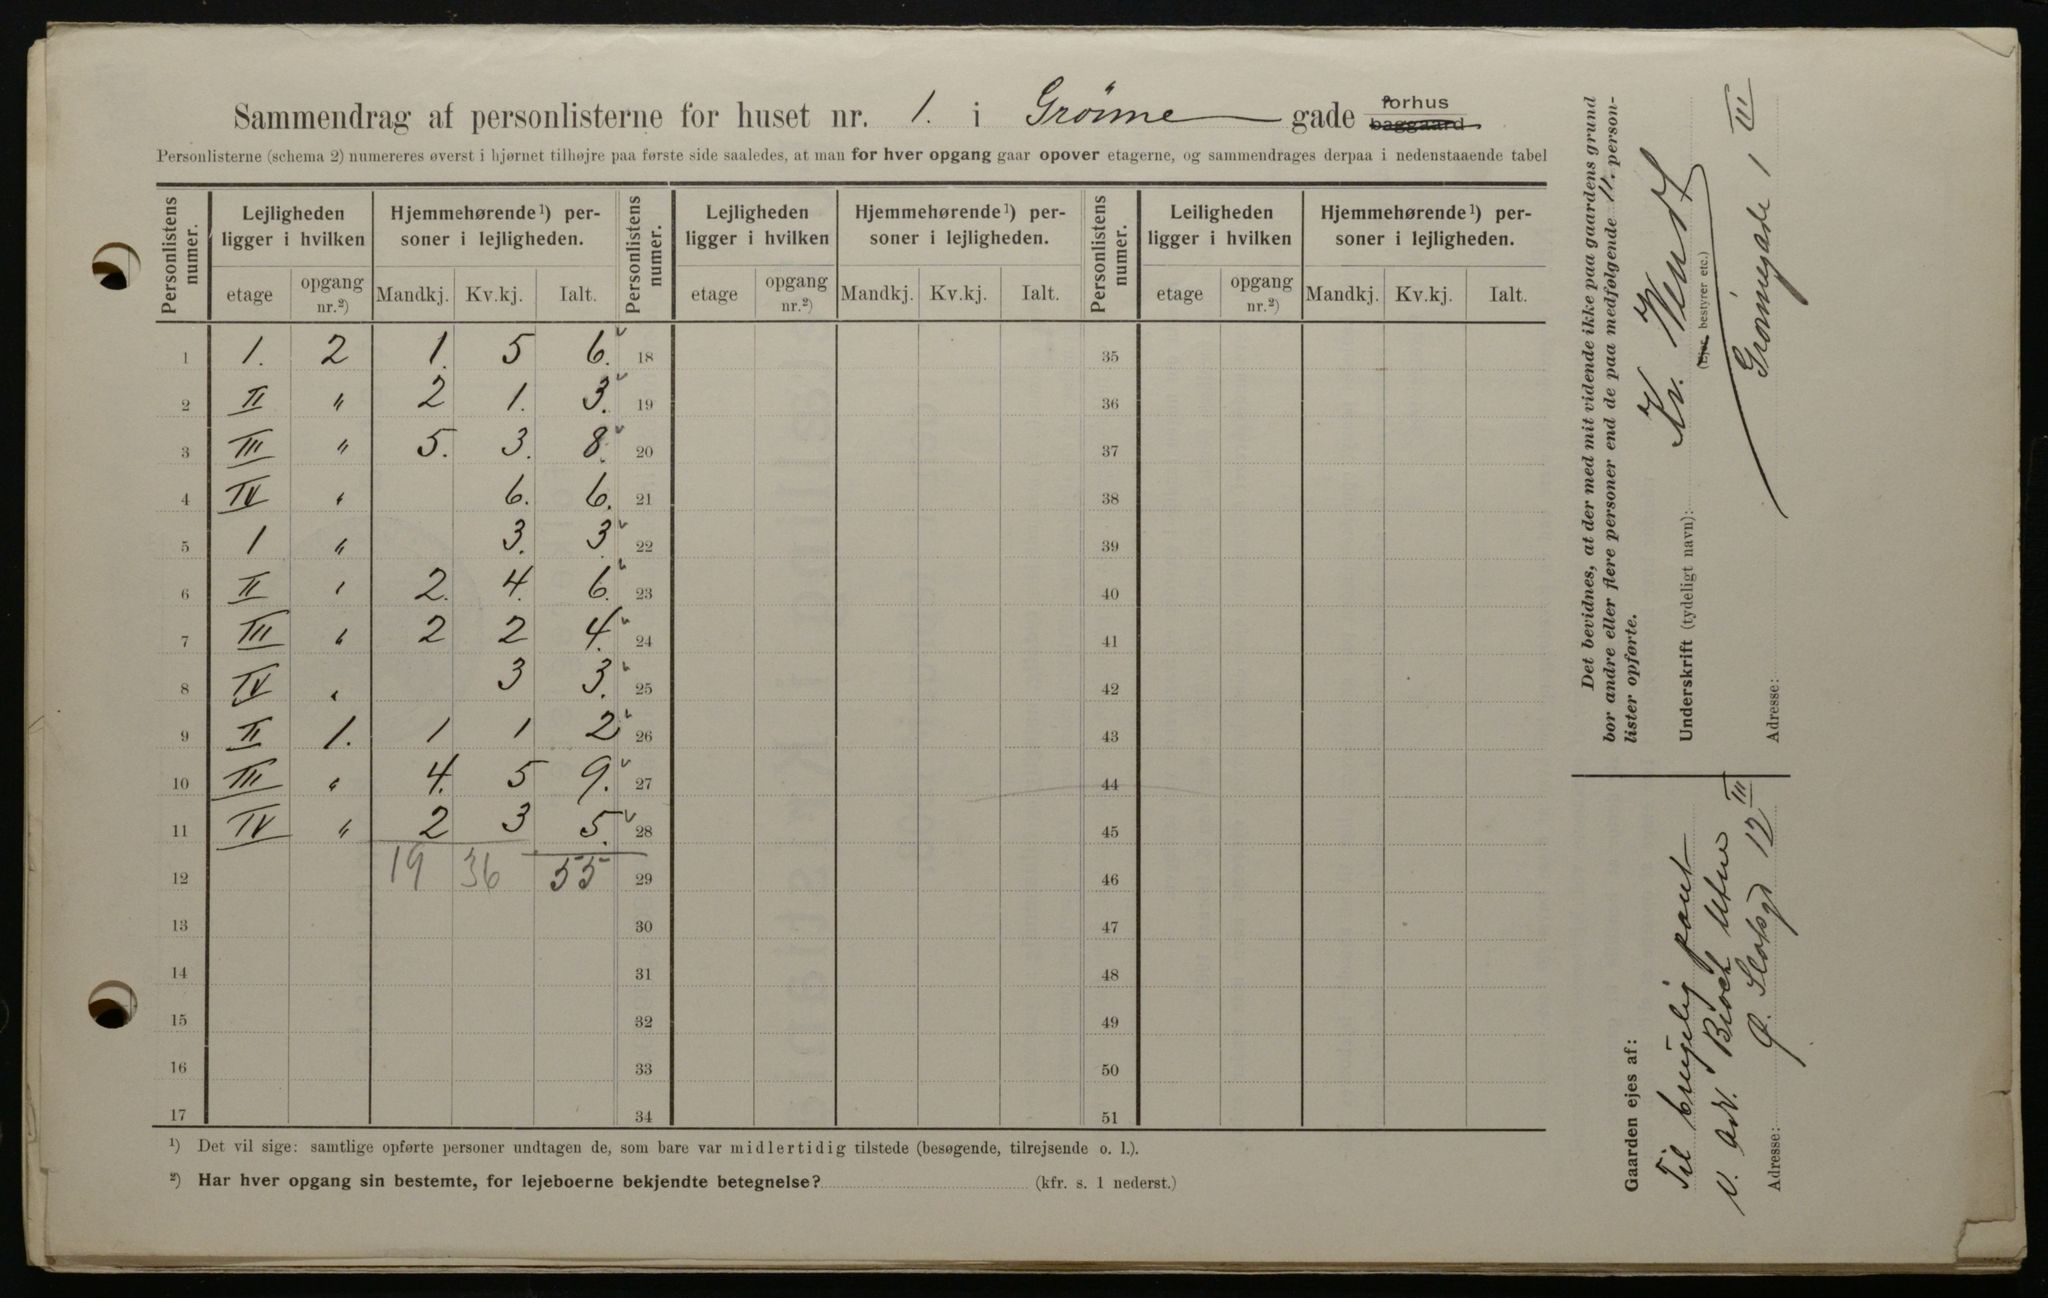 Sammendrag af personlisterne for huset nr. 1. i Grønne gade forhus baggaard
Personlisterne (schema 2) numereres øverst i hjørnet tilhøjre paa første side saaledes, at man for hver opgang gaar opover etagerne, og sammendrages derpaa i nedenstaaende tabel
Personlistens numer. Lejligheden ligger i hvilken Hjemmehørende ¹) personer i lejligheden. Personlistens numer. Lejligheden ligger i hvilken Hjemmehørende ¹) personer i lejligheden. Personlistens numer. Leiligheden ligger i hvilken Hjemmehørende ¹) personer i lejligheden.
etage opgang nr.²) Mandkj. Kv.kj. Ialt. etage opgang nr.²) Mandkj. Kv.kj. Ialt. etage opgang nr.²) Mandkj. Kv.kj. Ialt.
1 1. 2 1. 5 6. 18 35
2 II " 2 1. 3. 19 36
3 III " 5. 3. 8. 20 37
4 IV " 6. 6. 21 38
5 1 " 3. 3. 22 39
6 II " 2. 4. 6. 23 40
7 III " 2 2 4. 24 41
8 IV " 3 3. 25 42
9 II 1. 1 1 2 26 43
10 III " 4. 5 9. 27 44
11 IV " 2 3 5. 28 45
12 19 36 55 29 46
13 30 47
14 31 48
15 32 49
16 33 50
17 34 51
¹) Det vil sige: samtlige opførte personer undtagen de, som bare var midlertidig tilstede (besøgende, tilrejsende o. l.).
²) Har hver opgang sin bestemte, for lejeboerne bekjendte betegnelse? (kfr. s. 1 nederst.)
Det bevidnes, at der med mit vidende ikke paa gaardens grund
bor andre eller flere personer end de paa medfølgende 11. person-
lister opførte.
Underskrift (tydeligt navn): Kr. Wendt
(Ejer, bestyrer etc.)
Adresse: Grønnegade 1 III
Gaarden ejes af:
Til brugelig pant
v. adv. Bloch Utne
Adresse: Ø. Slotsgd 12 III